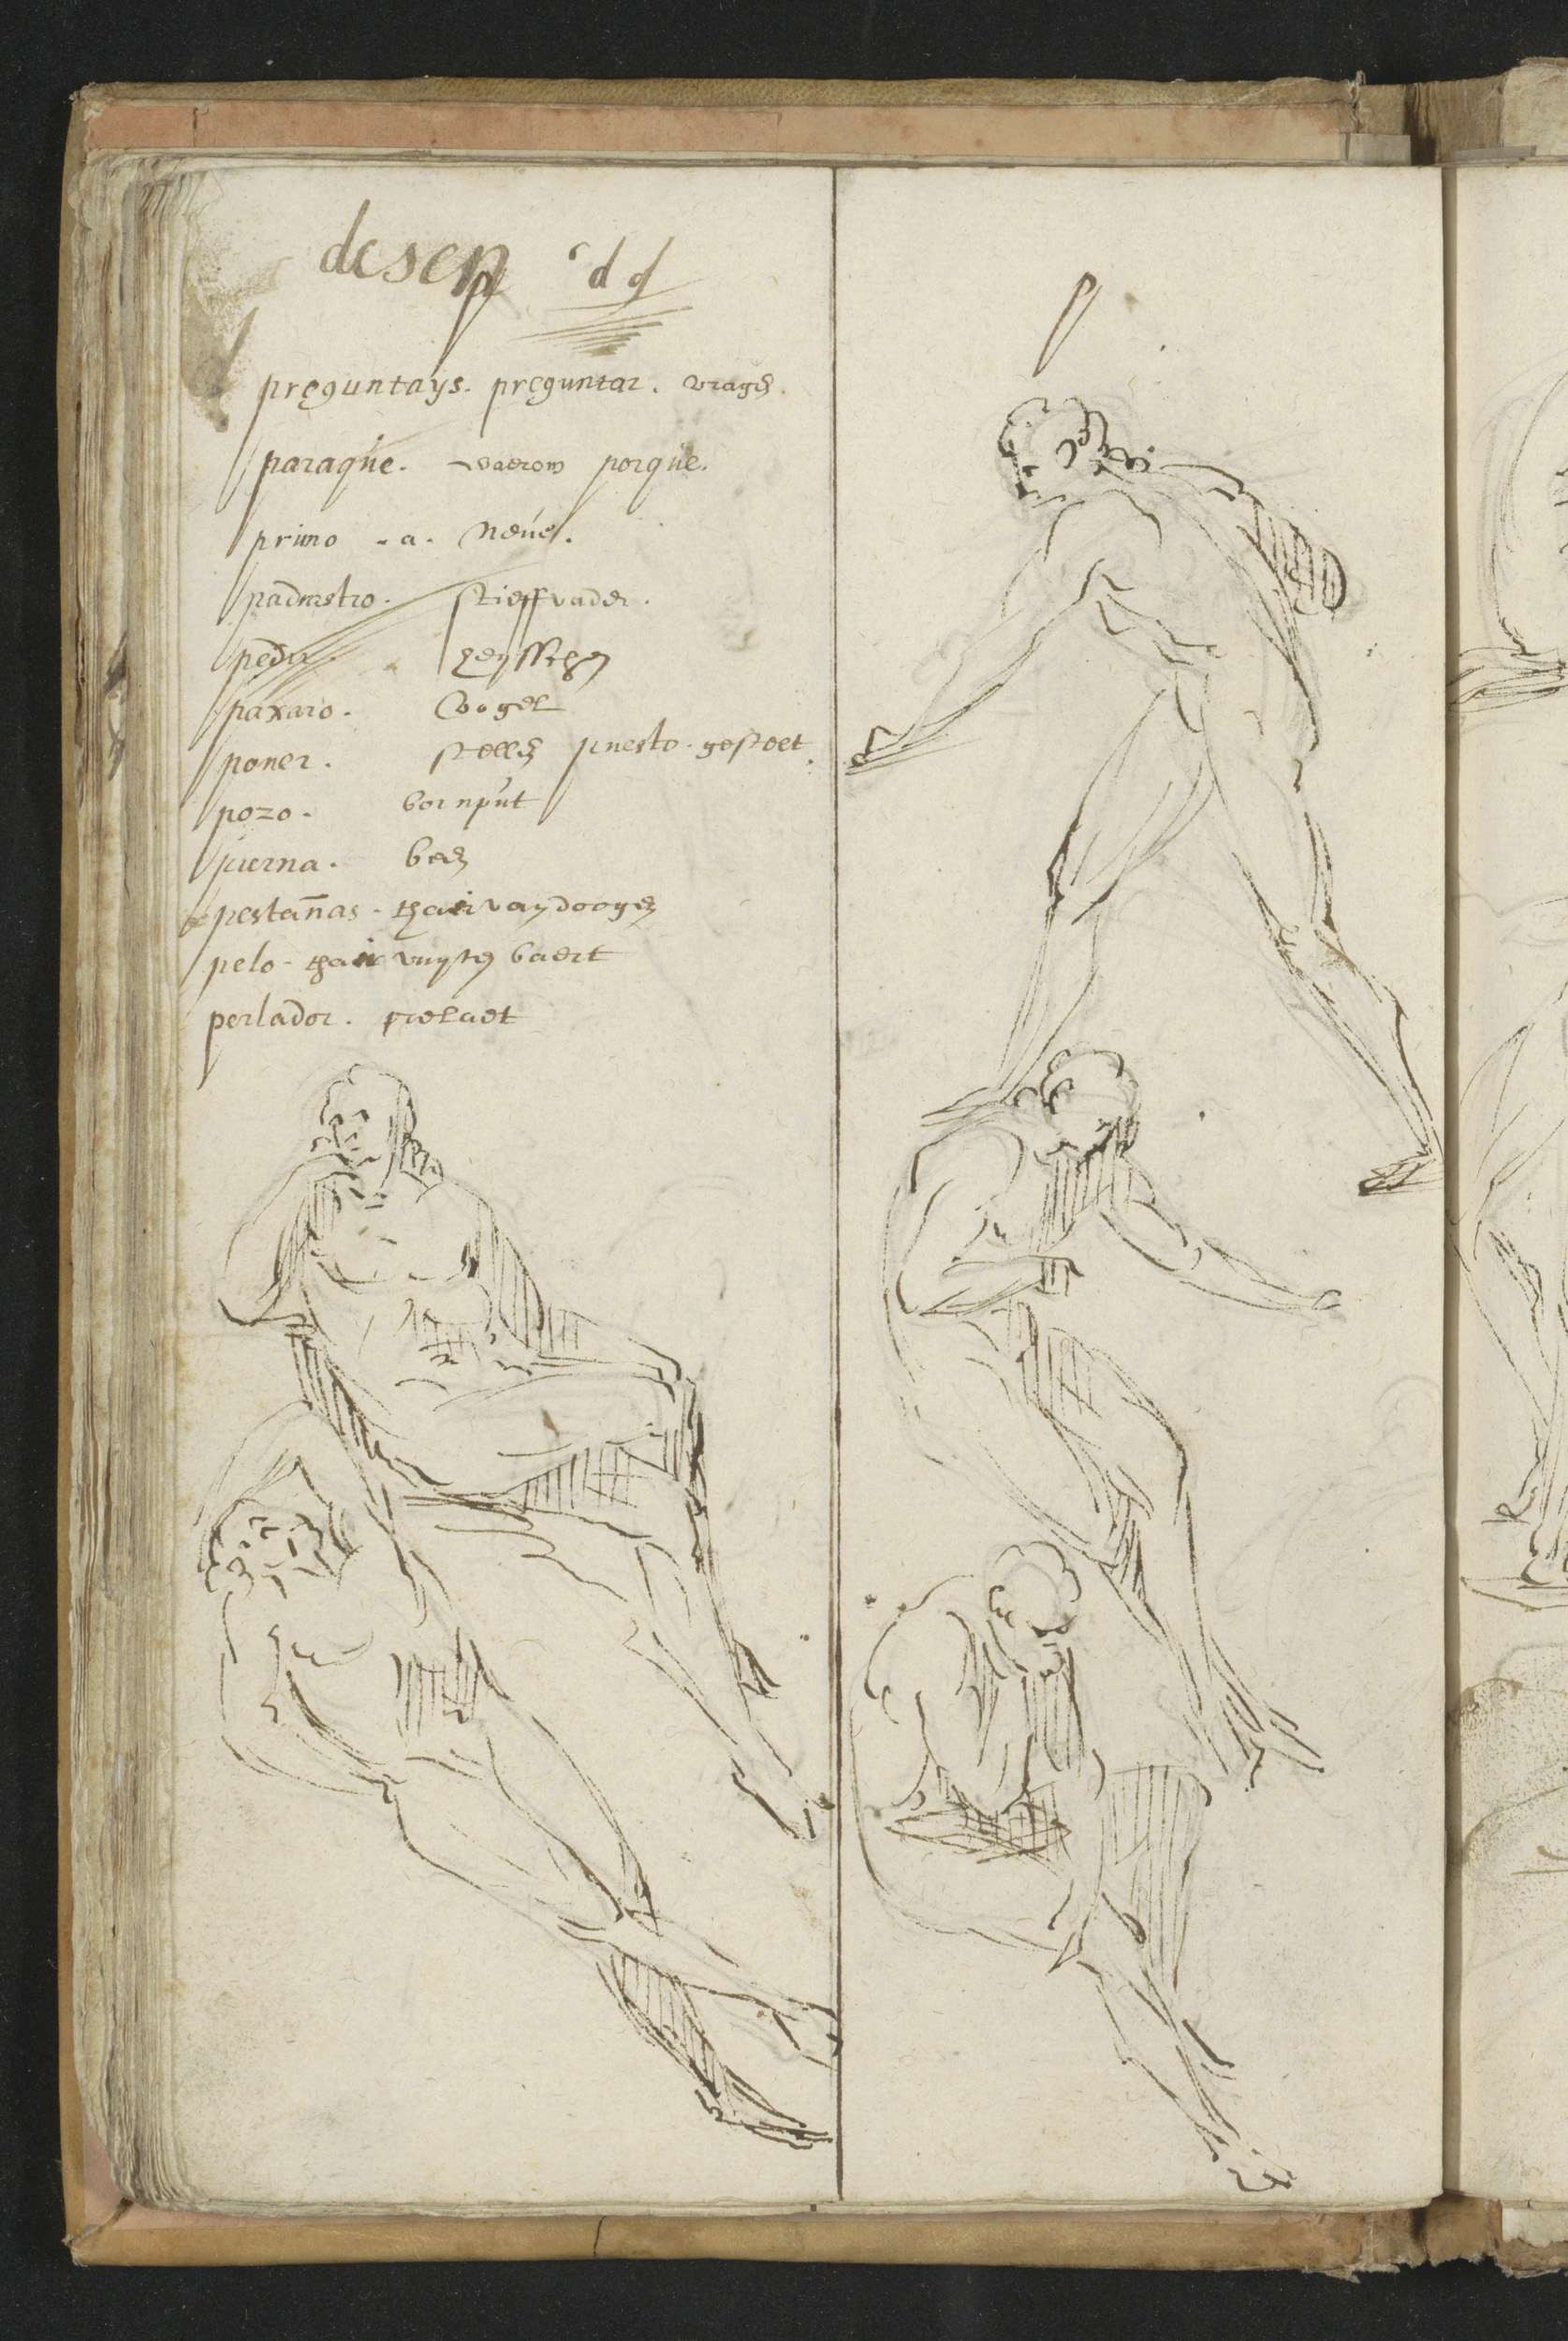 desen d d
p
preguntays. preguntar. vragen.
paraque. waerom porque.
primo - a. Neue.
padrastro. stieffvader.
pedir. heysschen
paxaro. voogel
poner. stellen puesto. gestelt.
pozo. bornput
pierna. been
pestañas. thair van dooghen
pelo. thair vuyten baert
perlador. prelaet
p